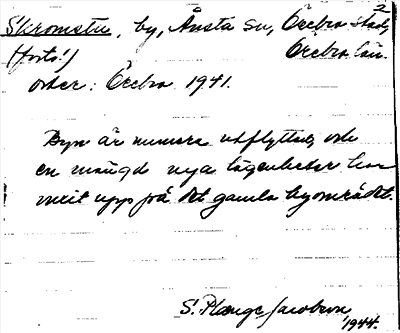 2
Skromsta, by, Ånsta sn, Örebro stad,
(forts.) Örebro län.
orter: Örebro 1941.
Byn är numera utflyttad och
en mängd nya lägenheter har
växt upp på det gamla byområdet.
S. Plænge Jacobson
1944